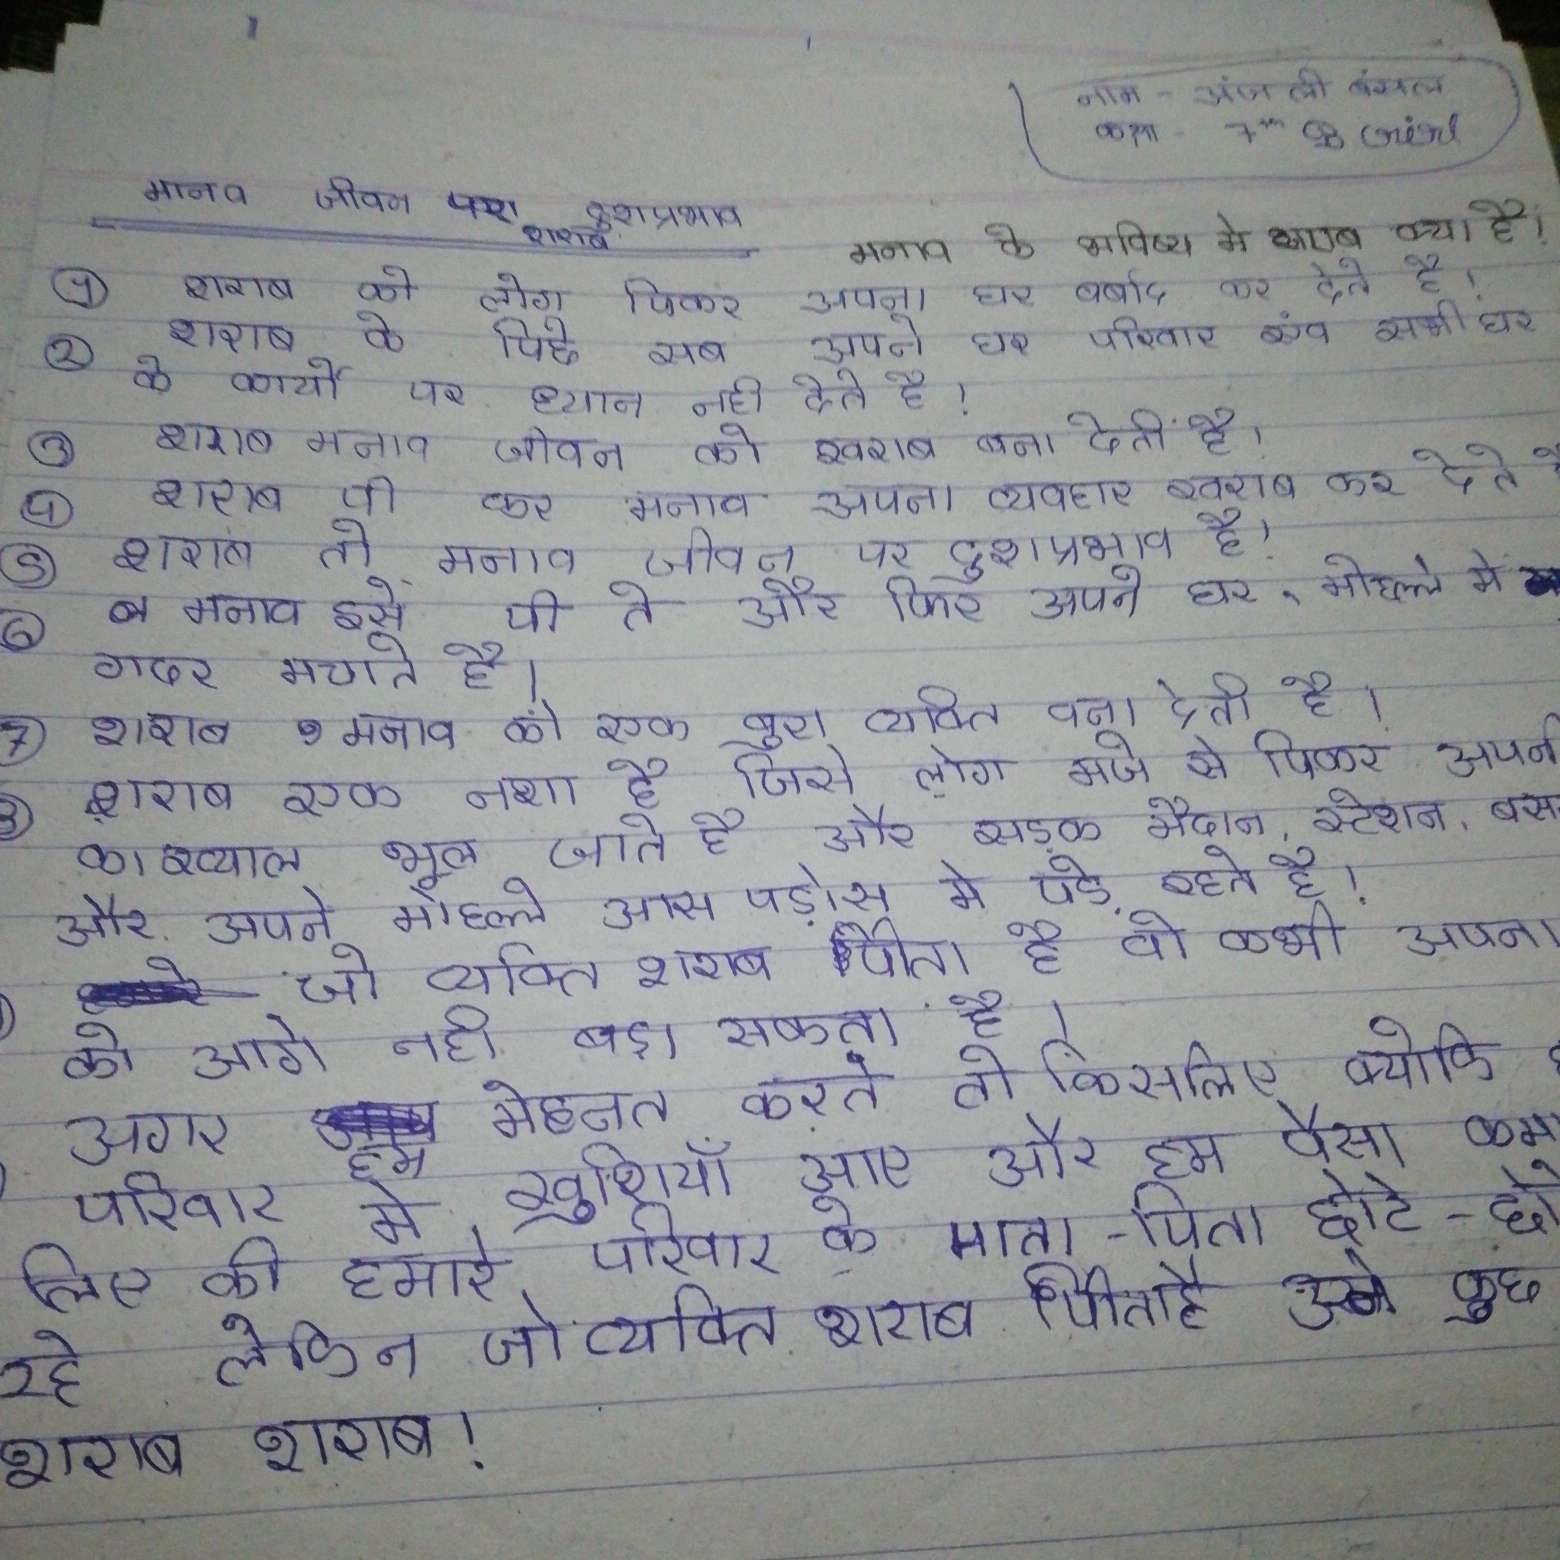 नाम - अंजली बंसल
कक्षा - 7th B
मानव जीवन पर शराब दुशप्रभाव
मनाव के भविष्य मे शराब क्या है!
① शराब को लोग पिकर अपना घर बर्बाद कर देते है!
② शराब के पिछे सब अपने घर परिवार एंव सभी घर
के कार्यों पर ध्यान नही देते है!
③ शराब मनाव जीवन को खराब बना देती है!
④ शराब पी कर मनाव अपना व्यवहार खराब कर देते है
⑤ शराब तो मनाव जीवन पर दुशप्रभाव है!
⑥ मनाव इसे पी ते और फिर अपने घर, मोहल्ले मे
गदर मचाते है!
⑦ शराब मनाव को एक बुरा व्यक्ति बना देती है!
⑧ शराब एक नशा है जिसे लोग मजे से पिकर अपने
का ख्याल भूल जाते है और सड़क मैदान, स्टेशन, बस
और अपने मोहल्ले आस पड़ोस मे पड़े रहते है!
जो व्यक्ति शराब पीता है वो कभी अपना
को आगे नही बढ़ा सकता है!
अगर हम मेहनत करते तो किसलिए क्योकि
परिवार मे खुशियाँ आए और हम पैसा कमा
लिए की हमारे परिवार के माता-पिता छोटे-छो
रहे लेकिन जो व्यक्ति शराब पीता है उसे कुछ
शराब शराब!